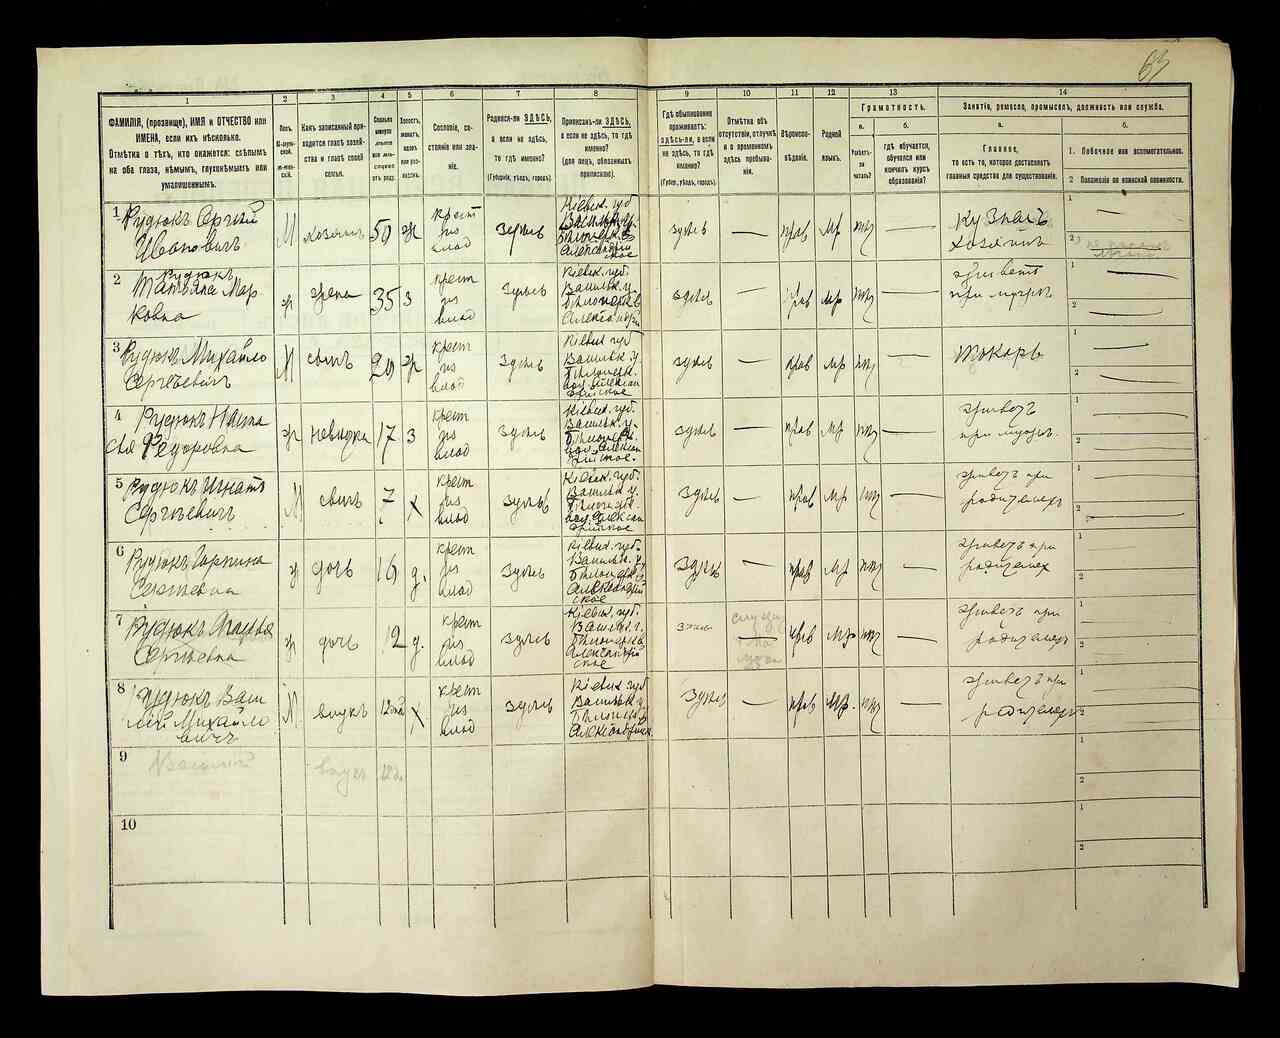 63
1 2 3 4 5 6 7 8 9 10 11 12 13 14
ФАМИЛІЯ, (прозвище), ИМЯ и ОТЧЕСТВО или
ИМЕНА, если ихъ нѣсколько.
Отмѣтка о тѣхъ, кто окажется: слѣпымъ
на оба глаза, нѣмымъ, глухонѣмымъ или
умалишеннымъ.
Полъ.
Какъ записанный при-
ходится главѣ хозяй-
ства и главѣ своей
семьи.
Сословіе, со-
стояніе или зва-
ніе.
Родился-ли ЗДѢСЬ,
а если не здѣсь,
то гдѣ именно?
(Губернія, уѣздъ, городъ).
Приписанъ-ли ЗДѢСЬ,
а если не здѣсь, то гдѣ
именно?
(Для лицъ, обязанныхъ
припискою).
Гдѣ обыкновенно
проживаетъ:
здѣсь-ли, а если
не здѣсь, то гдѣ
именно?
(Губер., уѣздъ, городъ).
Отмѣтка объ
отсутствіи, отлучкѣ
и о временномъ
здѣсь пребыва-
ніи.
Вѣроиспо-
вѣданіе.
Родной
языкъ.
Грамотность.
а.
Умѣетъ-
ли
читать?
б.
гдѣ обучается,
обучался или
кончилъ курсъ
образованія?
Занятіе, ремесло, промыселъ, должность или служба.
а.
Главное,
то есть то, которое доставляетъ
главныя средства для существованія.
б.
1. Побочное или вспомогательное.
2 Положеніе по воинской повинности.
1
Рудюкъ Сергій
Ивановичъ
М хозяинъ 50 ж
крест
из
влад
здѣсь
Кіевск. губ
Васильк. у.
Александрій
ское
здѣсь — прав мр —
Кузнецъ
хозяинъ
1 —
2
2
Рудюкъ
Татьяна Мар
ковна
ж жена 35 з
крест
из
влад
здѣсь
Кіевск. губ.
Васильк. у.
здѣсь — прав мр —
живетъ
при мужѣ
1 —
2
3
Рудюкъ Михайло
Сергѣевичъ
М сынъ 20 ж
крест
из
влад
здѣсь
Кіевск губ
Васильк. у.
здѣсь — прав мр —
Токарь
1 —
2 —
4
Рудюкъ Наста
сья Федоровна
ж невѣстка 17 з
крест
из
влад
здѣсь
Кіевск. губ.
Васильк. у.
здѣсь — прав мр —
живетъ
при мужѣ.
1 —
2 —
5
Рудюкъ Игнатъ
Сергѣевичъ
М сынъ 7 х
крест
из
влад
здѣсь
Кіевск. губ.
Васильк у.
здѣсь — прав мр —
живетъ при
родителяхъ
1
2 —
6
Рудюкъ Горпина
Сергѣевна
ж дочь 16 д.
крест
из
влад
здѣсь
Кіевск. губ.
Васильк. у.
Александрій
ское
здѣсь — прав мр —
живетъ при
родителях
1
2
7
Рудюкъ Марья
Сергѣевна
ж дочь 12 д.
крест
из
влад
здѣсь
Кіевск. губ.
Васильк. у.
Александрій
ское
здѣсь — прав мр —
живетъ при
родителяхъ
1
2
8
Рудюкъ Васи
лій Михайло
вичъ
М внукъ х
крест
из
влад
здѣсь
Кіевск. губ
Васильк у
здѣсь — прав мр. —
живетъ при
родителяхъ
1
2
9
Василій внукъ
1
2
10
1
2